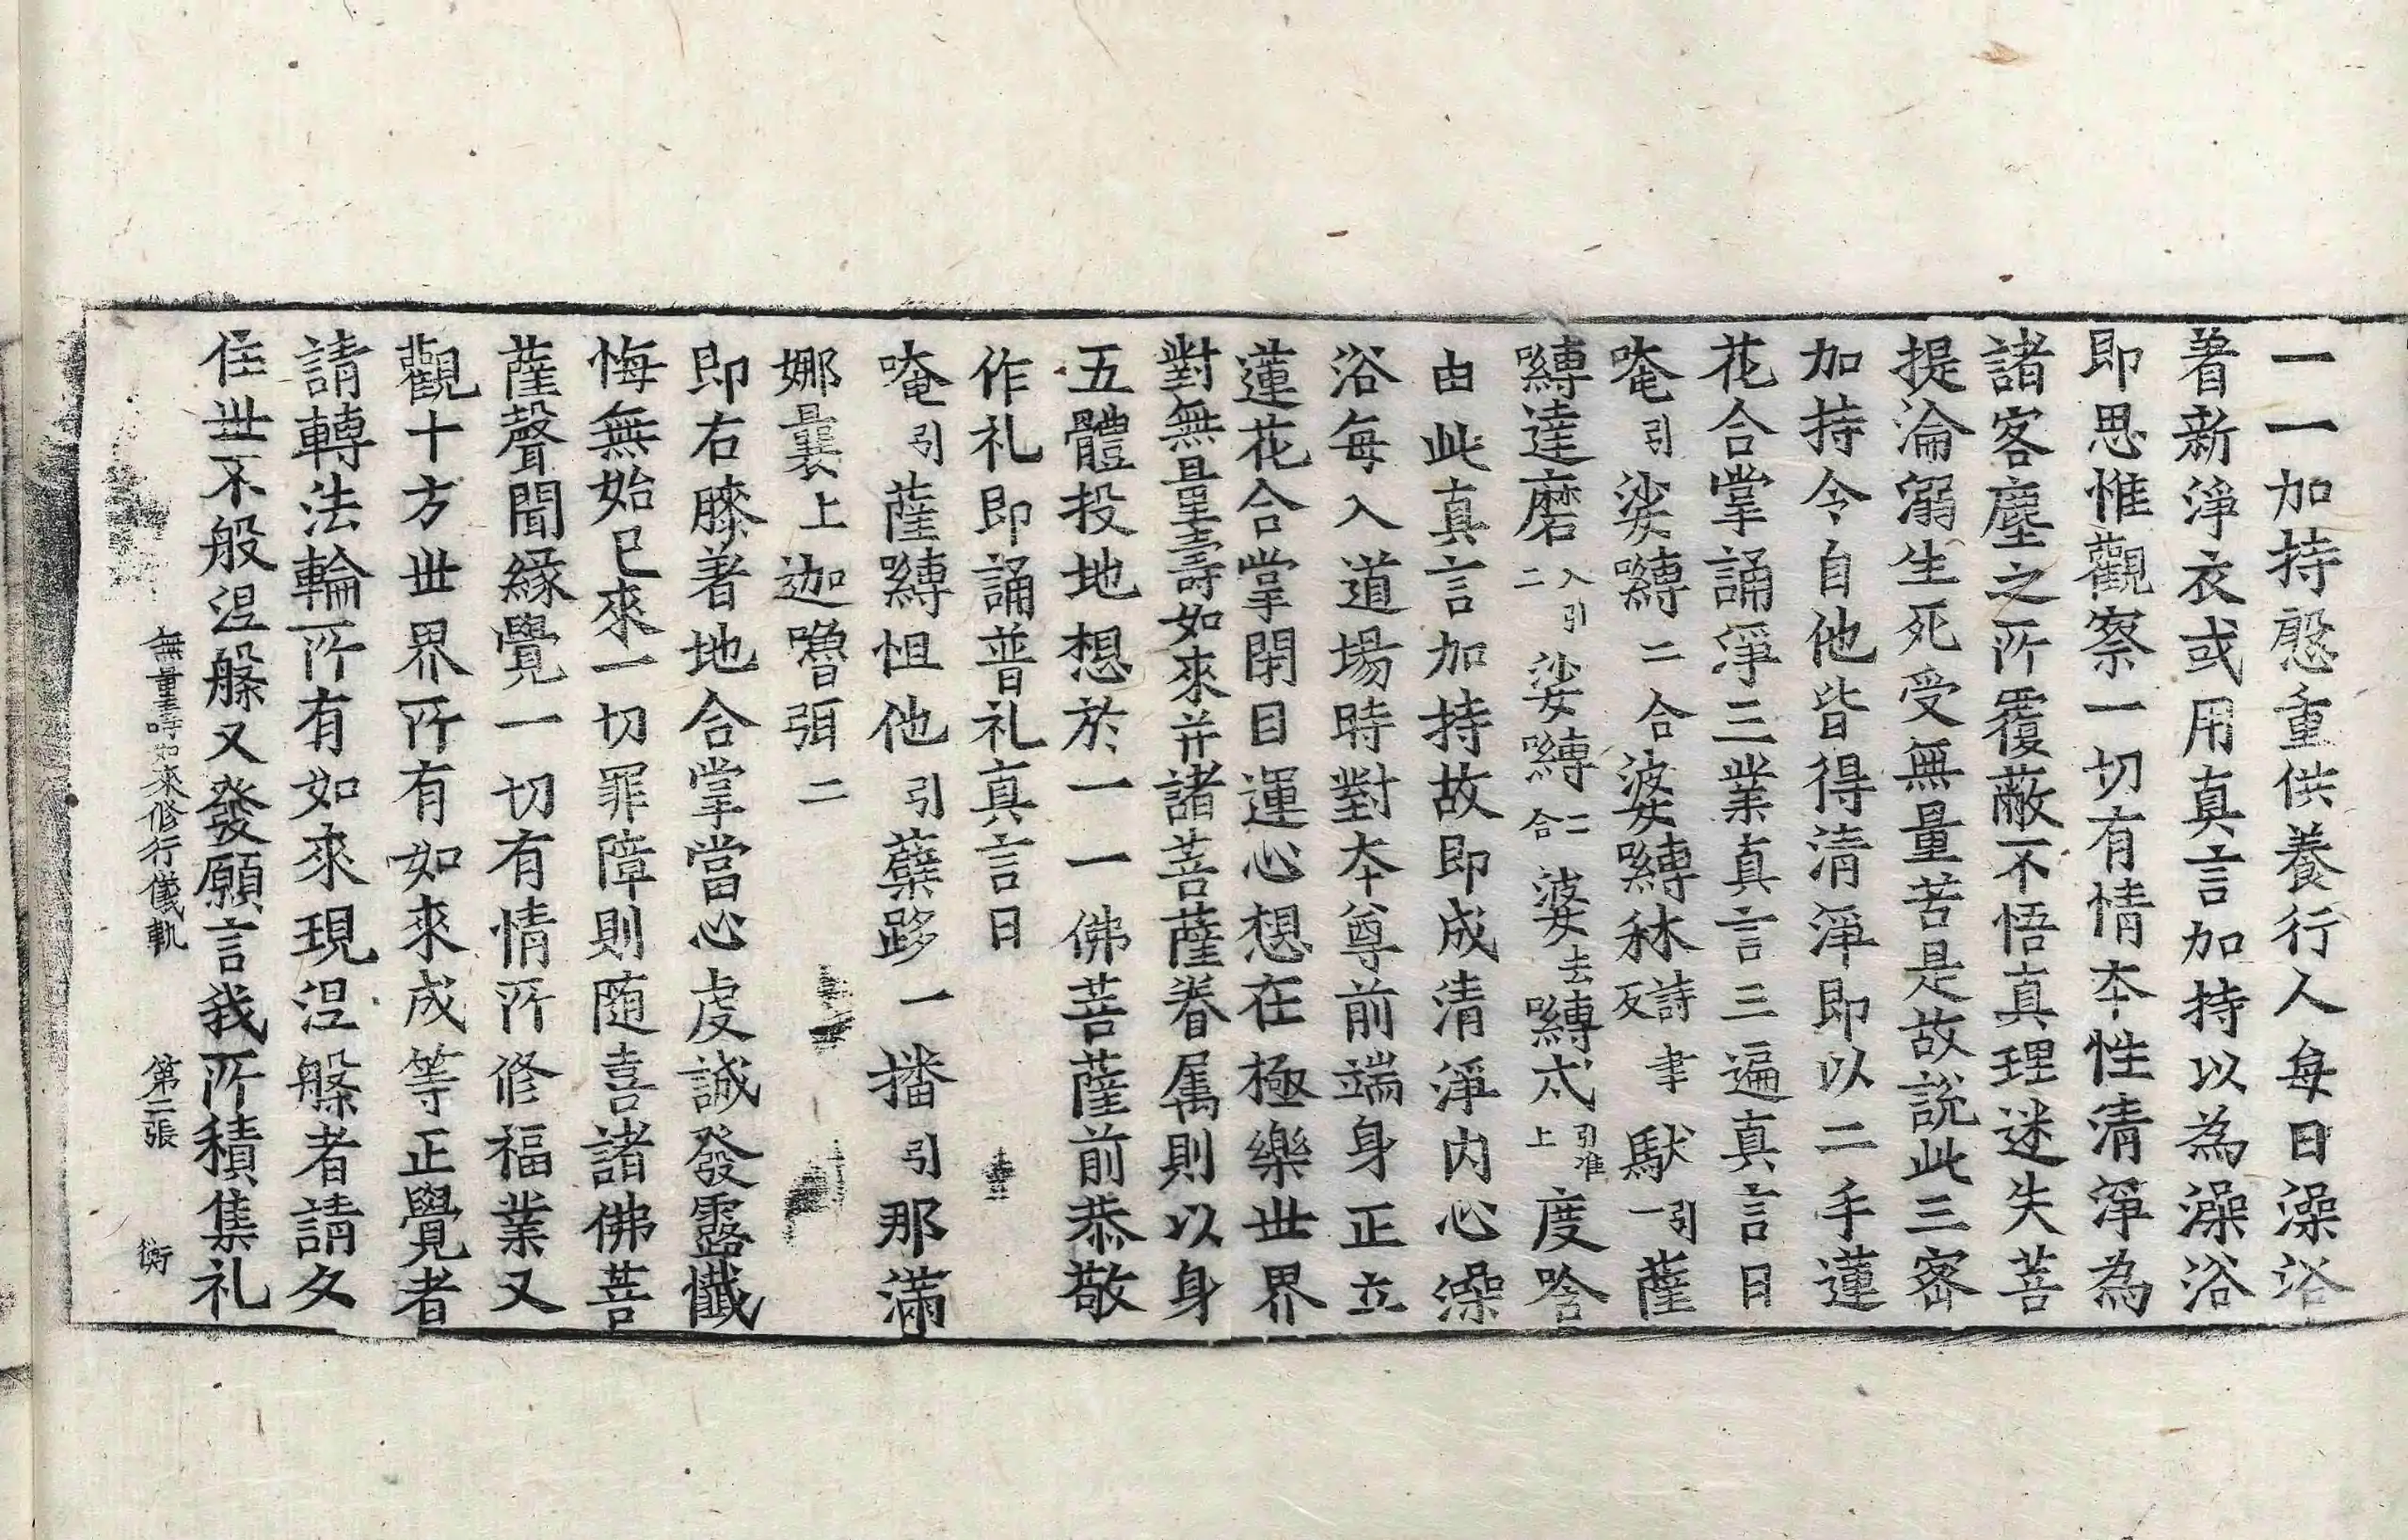 一一加持慇重供養行人每日澡浴
著新淨衣或用真言加持以為澡浴
即思惟觀察一切有情本性清淨為
諸客塵之所覆蔽不悟真理迷失菩
提淪溺生死受無量苦是故說此三密
加持令自他皆得清淨即以二手蓮
花合掌誦淨三業真言三遍真言曰
唵引娑嚩二合婆嚩秫詩聿反馱引一薩
嚩達磨入引二娑嚩二合婆去嚩忒引准上度唅
由此真言加持故即成清淨內心澡
浴每入道場時對本尊前端身正立
蓮花合掌閉目運心想在極樂世界
對無量壽如來并諸菩薩眷属則以身
五體投地想於一一佛菩薩前恭敬
作礼即誦普礼真言曰
唵引薩嚩怛他引蘖跢一播引那滿
娜曩上迦嚕弭二
即右膝著地合掌當心虔誠發露懺
悔無始已來一切罪障則随喜諸佛菩
薩聲聞緣覺一切有情所修福業又
觀十方世界所有如來成等正覺者
請轉法輪所有如來現涅槃者請久
住世不般涅槃又發願言我所積集礼
無量壽如來修行儀軌 第三張 衡